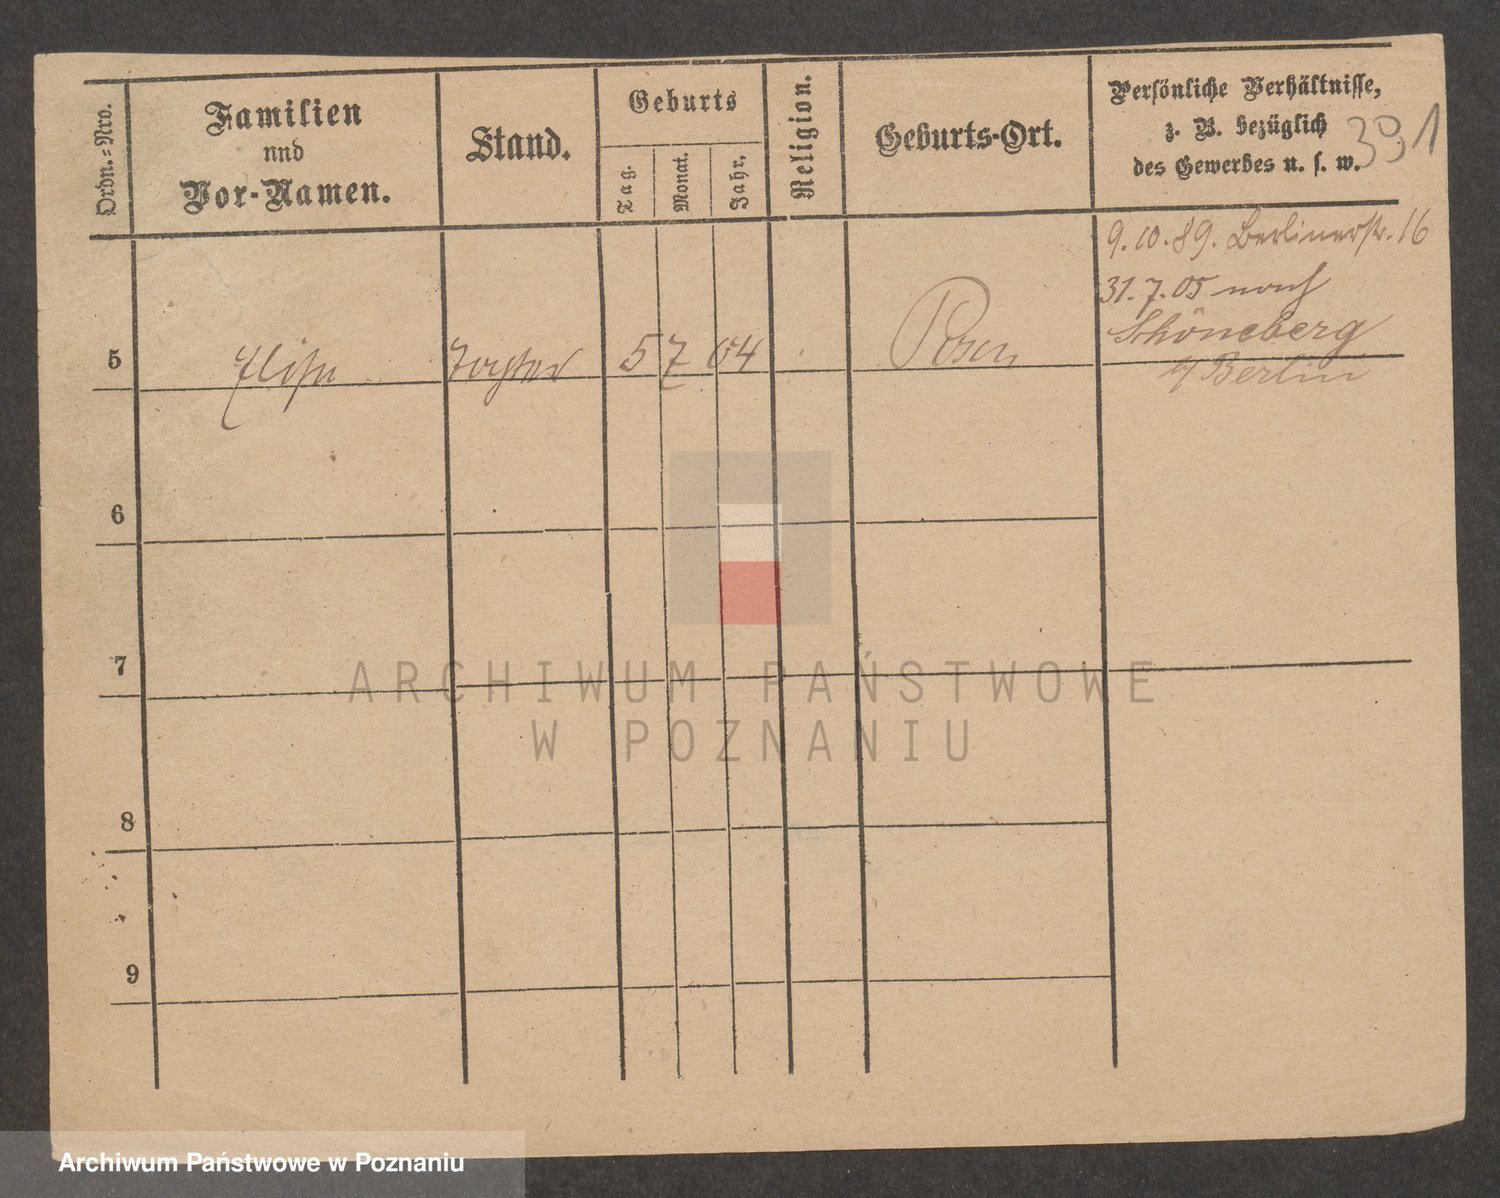 Ordn.=Nro.
Familien
und
Vor-Namen.
Stand.
Geburts
Tag.
Monat.
Jahr.
Religion.
Geburts-Ort.
Persönliche Verhältnisse,
z. B. bezüglich
des Gewerbes u. s. w.
391
9.10.89. Berlinerstr. 16
31.7.05 nach
Schöneberg
b/ Berlin
5 Elise Tochter 5 7 64 Posen
6
7
8
9
ARCHIWUM PAŃSTWOWE
W POZNANIU
Archiwum Państwowe w Poznaniu